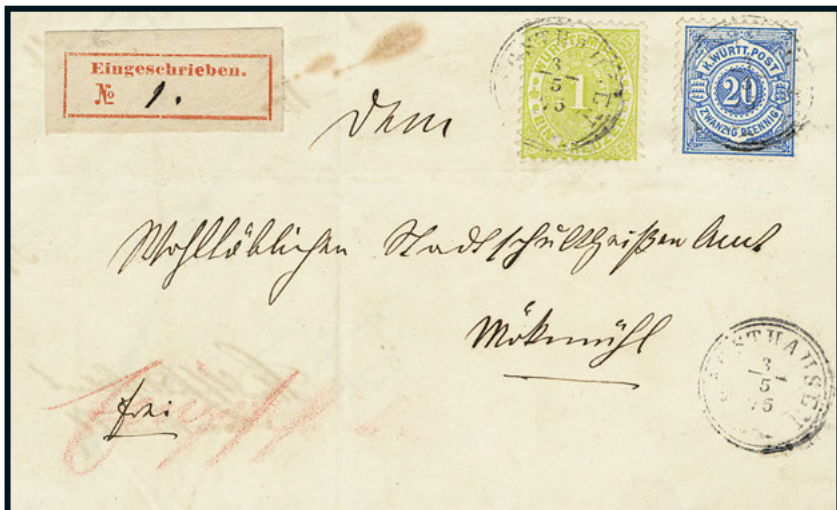 Eingeschrieben.
№ 1.
WÜRTTEMB
1
EIN KREUZER
3
5
75
K. WÜRTT. POST
20
ZWANZIG PFENNIG
Dem
Wohllöblichen Stadtschultheißen Amt
Mökmühl
frei
3
5
75